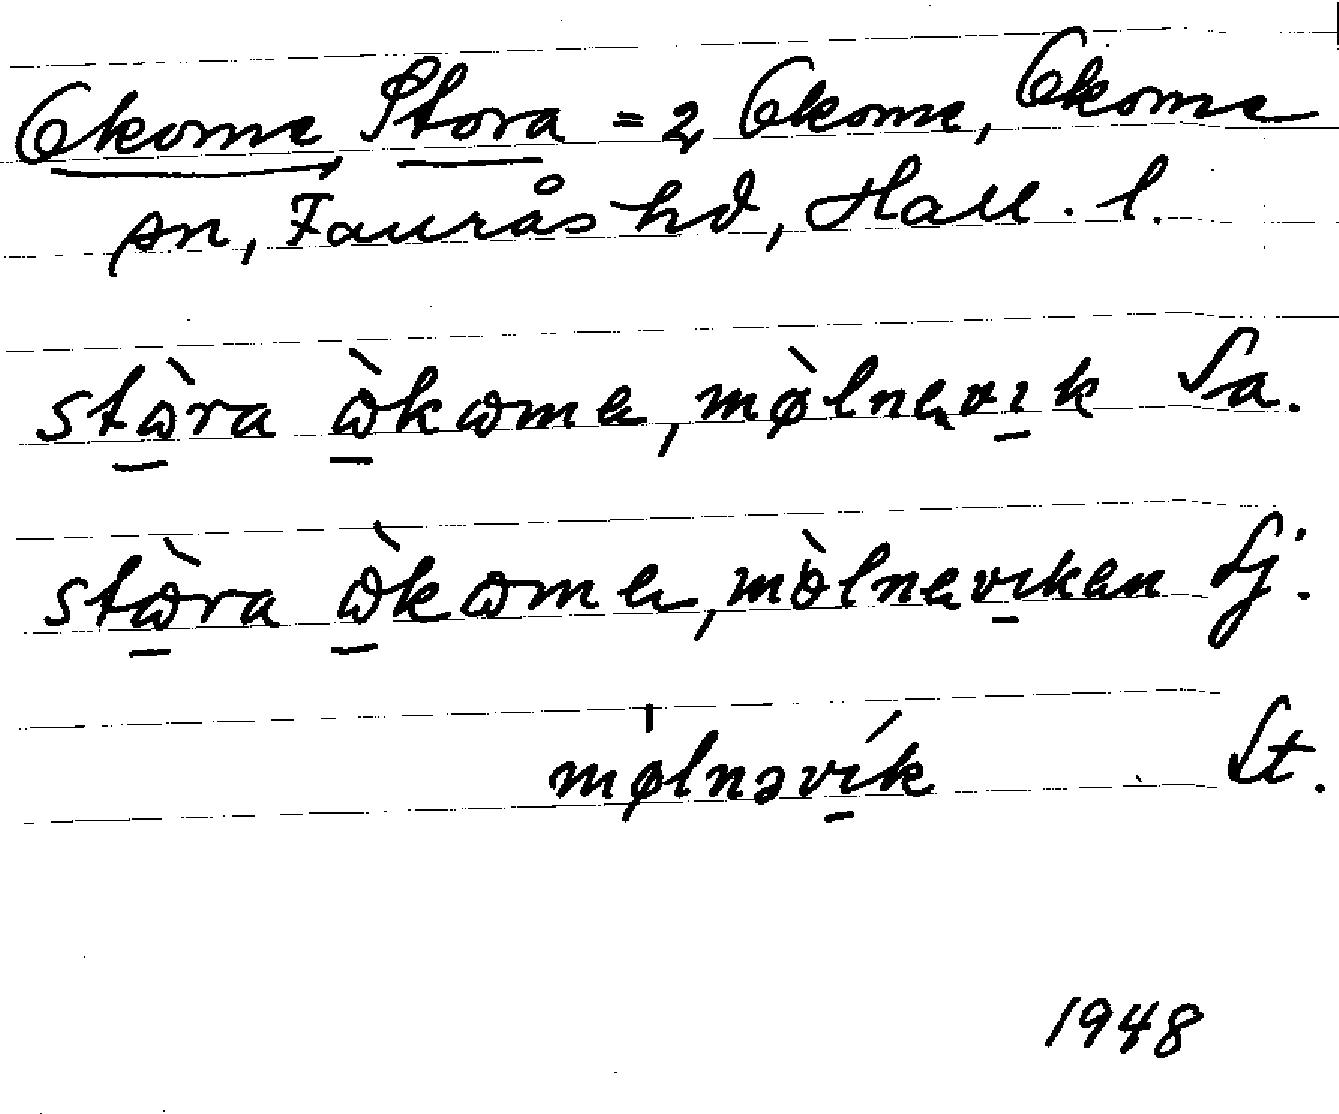 Okome, Stora = 2 Okome, Okome
sn, Faurås hd, Hall. l.
stɷ̀ra ɷ̀kɷme, mø̀lnevık Sa.
stɷ̀ra ɷ̀kɷme, mɷ̀lnevıken Sj.
mølnəvík St.
1948